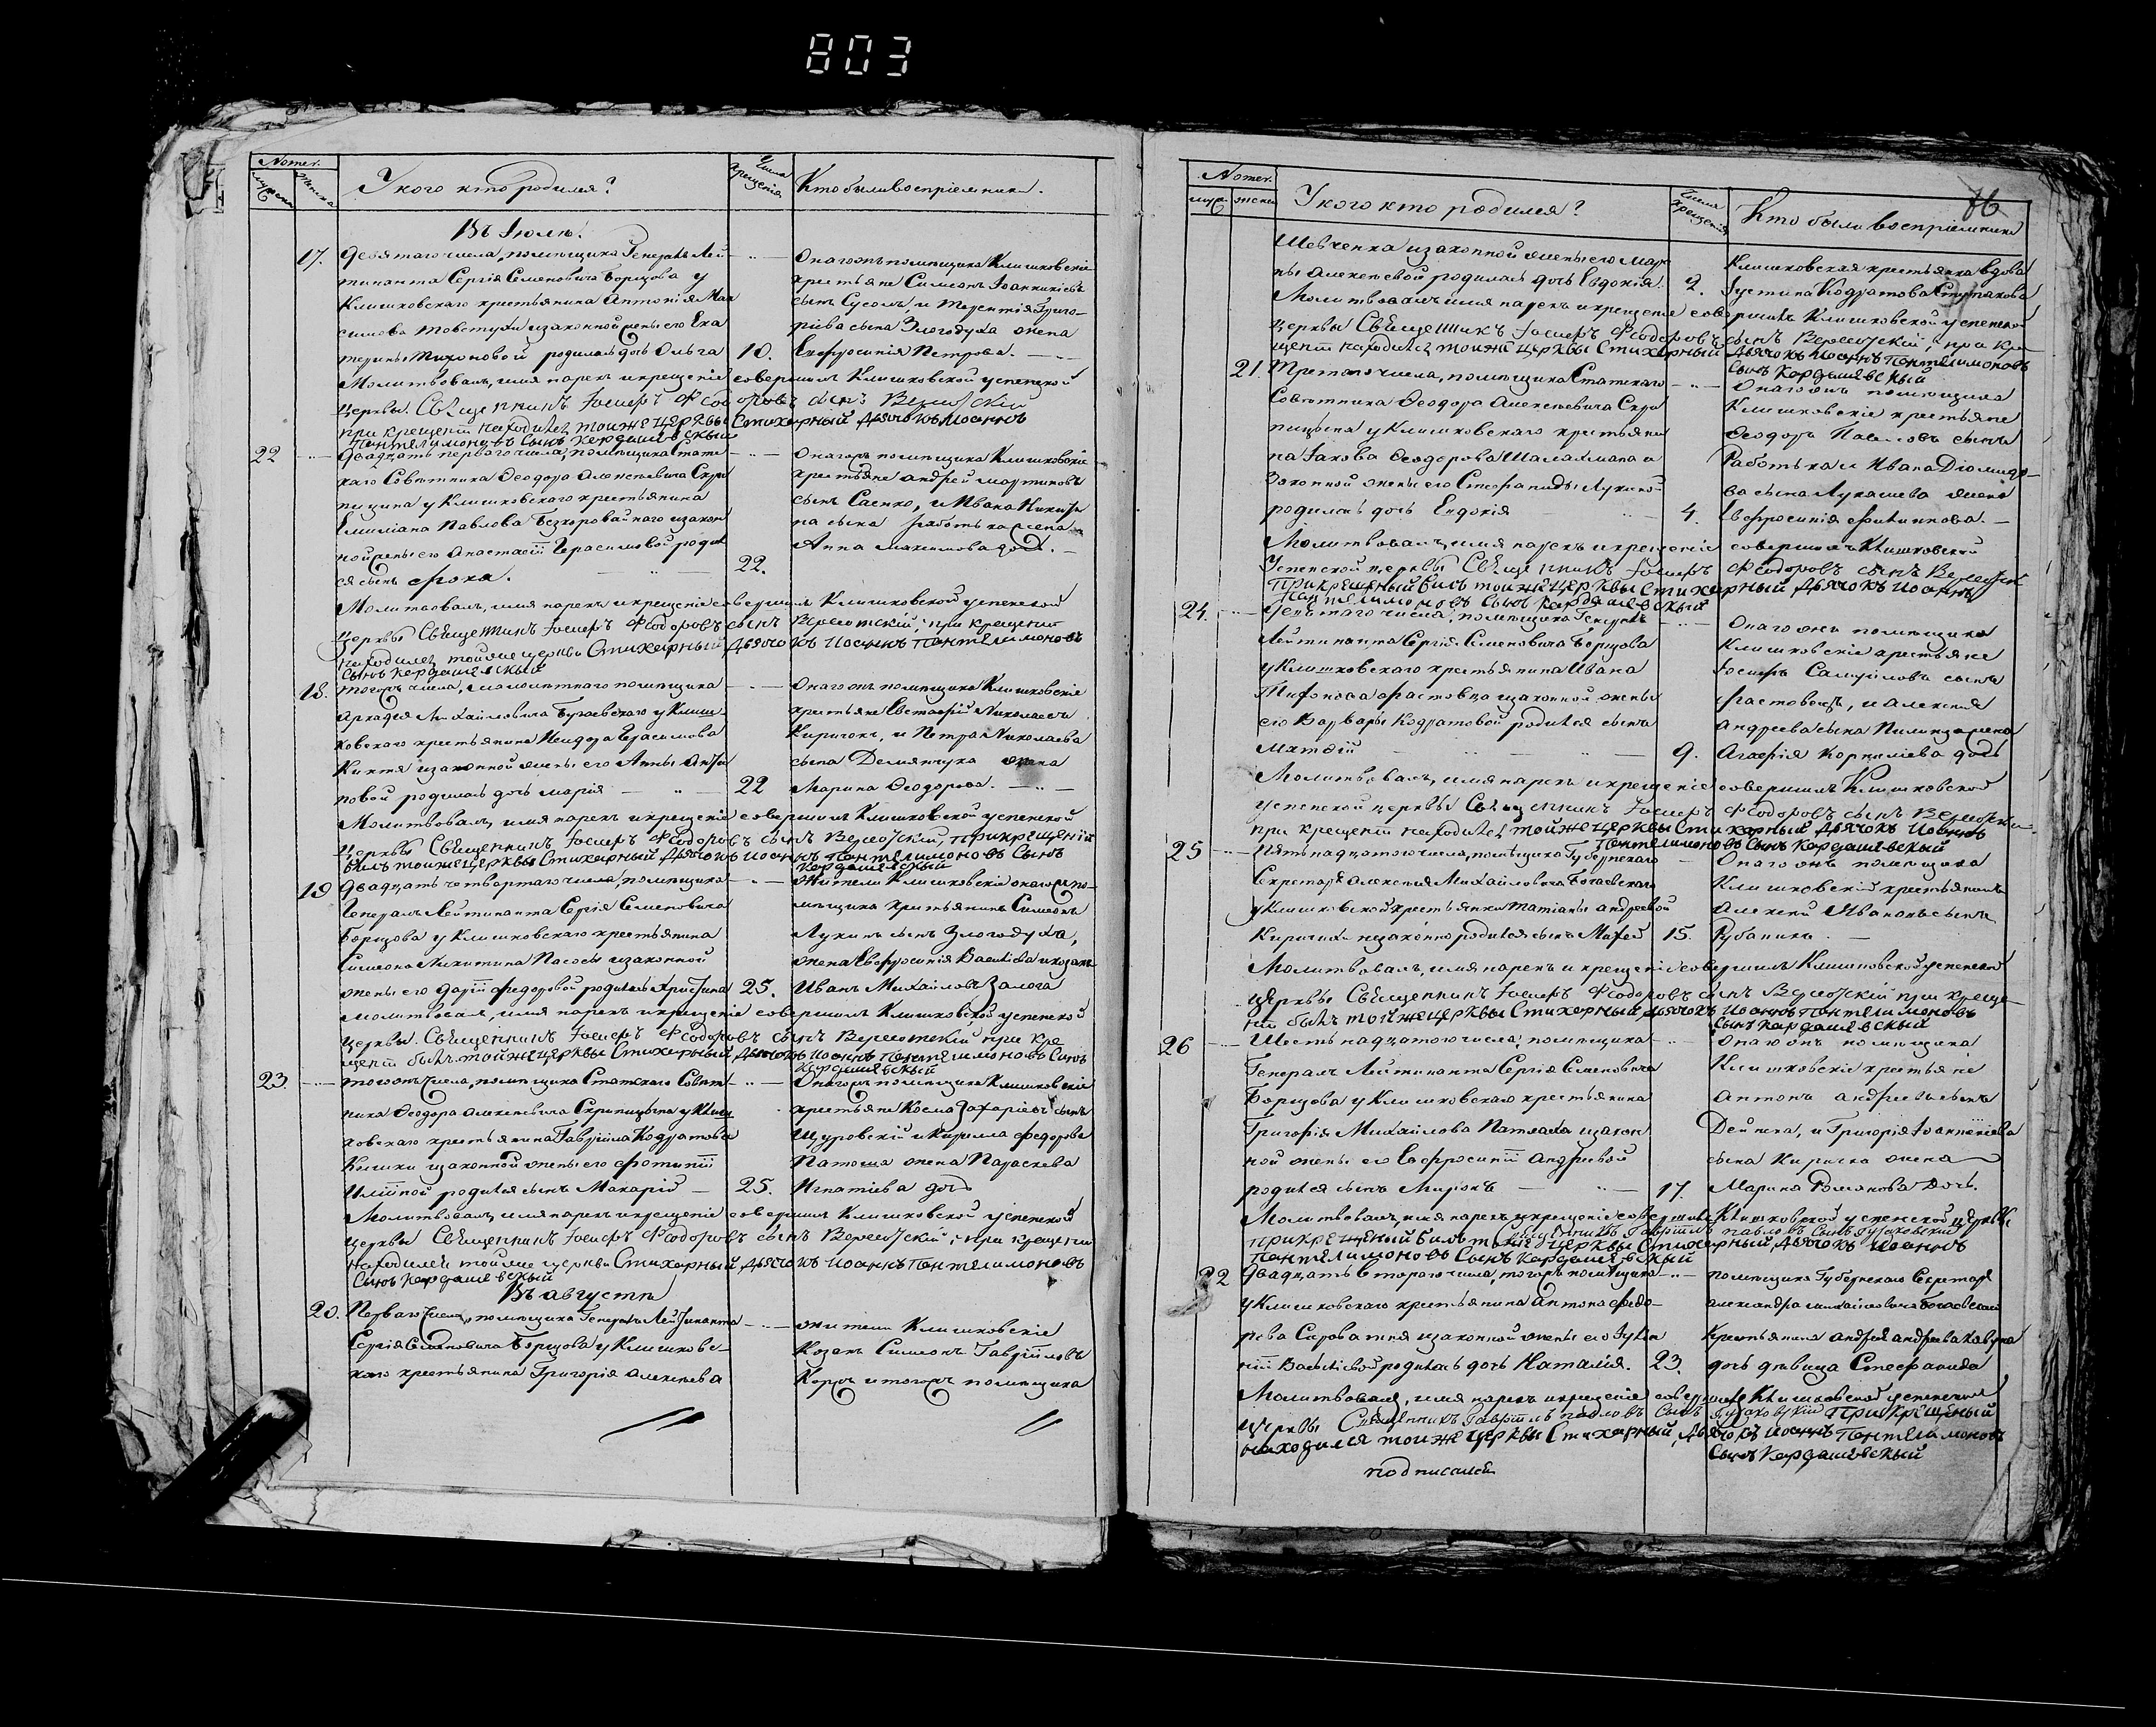 803
Nomer.
мужеска
женска
У кого кто родился?
Числа крещенія
Кто были воспріемники.
Въ Іюлѣ.
17. Девятаго числа, помѣщика Генералъ Лей
тинанта Сергія Семеновича Борщова у
Клишковского крестьянина Антонія Мак
симова Товстухи изаконной жены его Ека
терины Тихоновой родилась дочь Ольга 10.
Онагожъ помѣщика Клишковскіе
крестьяне Симеонъ Іоанникіевъ
сынъ Сусолъ, и Терентія Григо-
ріева сына Злогодуха жена
Евфросинія Петрова.
Молитвовалъ, имя нарекъ и крещеніе совершилъ Клишковской успенской
церквы. Свѣщенникъ Іосифъ Феодоровъ сынъ Верготскій
при крещеніи находился тойже церквы Стихарный Дьячокъ Иоаннъ
Пантелимоновъ Сынъ Кардашевскый
22 Двадцать перваго числа, помѣщика Статс
каго Совѣтника Феодора Алексѣевича Скри
пицына у Клишковского крестьянина
Емилиана Павлова Безкоровайнаго изакон
ной жены его Анастасіи Герасимовой родил
ся сынъ Фока. 22.
Онагожъ помѣщика Клишковскіе
крестьяне Андрей Мартиновъ
сынъ Саенко, и Ивана Никифо
на сына Работька жена
Анна Максимова дочь.
Молитвовалъ, имя нарекъ и крещеніе совершилъ Клишковской успенской
церквы Свѣщенникъ Іосифъ Феодоровъ сынъ Верготскій, при крещеніи
находился тойже церкви Стихарный Дьячокъ Иоаннъ Пантелимоновъ
Сынъ Кардашевскый
18. Тогожъ числа, малолѣтнаго помѣщика
Аркадія Михайловича Бугаевского у Клиш-
ковского крестьянина Исидора Герасимова
Кихтя изаконной жены его Анны Анти
повой родилась дочь Марія 22
Онагожъ помѣщика Клишковскіе
крестьяне Евстафій Николаевъ
Киричокъ, и Петра Николаева
сына Демянчука жена
Марина Феодорова.
Молитвовалъ, имя нарекъ и крещеніе совершилъ Клишковской успенской
церквы Свѣщенникъ Іосифъ Феодоровъ сынъ Верготскій, прикрещеніи
билъ тоижецерквы Стихарный Дьячокъ Иоаннъ Пантелимоновъ Сынъ
Кардашевскый
19 Двадцать четвертаго числа, помѣщика
Генералъ Лейтинанта Сергія Семеновича
Борщова у Клишковского крестьянина
Симеона Никитина Пасосы изаконной
жены его Даріи Федоровой родилась Христина 25.
Жители Клишковскіе онагожъ по-
мѣщика крестьянинъ Симеонъ
Лукинъ сынъ Злогодуха,
жена Евфросинія Василіева икозакъ
Иванъ Михайловъ Залога
Молитвовалъ, имя нарекъ и крещеніе совершилъ Клишковской успенской
церквы. Свѣщенникъ Іосифъ Феодоровъ сынъ Верготскій при кре
щеніи былъ тойжецерквы Стихарный Дьячокъ Иоаннъ Пантелимоновъ Сынъ
Кардашевскый
23. Тогожъ числа, помѣщика Статскаго Совѣт
ника Феодора Алексѣевича Скрипицына у Клиш
ковского крестьянина Гавріила Кодратова
Килики изаконной жены его Фотиніи
родился сынъ Макарій 25.
Онагожъ помѣщика Клишковскіе
крестьяне Косма Захаріевъ сынъ
Щуровскій и Кирилла Федорова
Патоша жена Параскева
Игнатіева дочь
Молитвовалъ, имя нарекъ и крещеніе совершилъ Клишковской успенской
церквы Свѣщенникъ Іосифъ Феодоровъ сынъ Верготскій, при крещеніи
находился тойже церкви Стихарный Дьячокъ Иоаннъ Пантелимоновъ
Сынъ Кардашевскый
Въ августѣ
20. Перваго числа, помѣщика Генералъ Лейтинанта
Сергія Семеновича Борщова у Клишковс-
кого крестьянина Григорія Алексѣева
жители Клишковскіе
Козакъ Симеонъ Гавріиловъ
Коржъ итогожъ помѣщика
Nomer.
муж
женск
У кого кто родился?
Числа крещенія
Кто были воспріемники
86
Шевченка изаконной жены его Мар
ны Алексѣевой родилась дочь Евдокія. 2.
Клишковская крестьянка вдова
Іустина Кодратова Ступакова
Молитвовалъ имя нарекъ и крещеніе совершилъ Клишковской успенской
церквы Свѣщенникъ Іосифъ Феодоровъ сынъ Верготскій, при кре
щеніи находился тоиже церквы Стихарный Дьячокъ Иоаннъ Пантелимоновъ
Сынъ Кардашевскый
21. Третаго числа, помѣщика Статскаго
Совѣтника Феодора Алексѣевича Скри
пицына у Клишковского крестьяни
на Іакова Феодорова Шаламана и
законной жены его Стефаниды Лукино
родилась дочь Евдокія 4.
Онагожъ помѣщика
Клишковскіе крестьяне
Феодоръ Павловъ сынъ
Работька и Ивана Діомидо-
ва сына Лукашева жена
Евфросинія Филипова.
Молитвовалъ, имя нарекъ и крещеніе совершилъ Клишковской
Успенской церквы Свѣщенникъ Іосифъ Феодоровъ сынъ Верготскій
прикрещеный билъ тойже церквы Стихарный Дьячокъ Иоаннъ
Пантелимоновъ Сынъ Кардашевскый
24. числа, помѣщика Генералъ
Лейтинанта Сергія Семеновича Борщова
у Клишковского крестьянина Ивана
Фастовца изаконной жены
его Варвары Кодратовой родился сынъ
Матфій 9.
Онагожъ помѣщика
Клишковскіе крестьяне
Іосифъ Самуйловъ сынъ
Фастовецъ, и Алексѣя
Андреева сына Пилипаренка
Агафія Корнилієва дочь
Молитвовалъ, имя нарекъ и крещеніе совершилъ Клишковской
успенской церквы Свѣщенникъ Іосифъ Феодоровъ сынъ Верготскій
при крещеніи находился тойже церквы Стихарный Дьячокъ Иоаннъ
Пантелимоновъ Сынъ Кардашевскый
25 Пятьнадцатого числа, помѣщика Губернскаго
Секретаря Алексѣя Михайловича Богаевского
у Клишковской крестьянки Татіаны Андреевой
Киричихи незаконно родился сынъ Михей 15.
Онагожъ помѣщика
Клишковскій крестьянинъ
Алексѣй Ивановъ сынъ
Рубаникъ
Молитвовалъ, имя нарекъ и крещеніе совершилъ Клишковской успенской
церквы Свѣщенникъ Іосифъ Феодоровъ сынъ Верготскій при креще-
ніи былъ тойжецерквы Стихарный Дьячокъ Иоаннъ Пантелимоновъ
Сынъ Кардашевскый
26 Шестьнадцатого числа, помѣщика
Генералъ Лейтинанта Сергія Семеновича
Борщова у Клишковского крестьянина
Григорія Михайлова Патлаха изакон
ной жены его Евфросиніи Андреевой
родился сынъ Миронъ 17.
Онагожъ помѣщика
Клишковскіе крестьяне
Антонъ Андреевъ сынъ
Дейнека, и Григорія Іоанникіева
сына Кирика жена
Марина Романова дочь.
Молитвовалъ, имя нарекъ и крещеніе совершилъ Клишковской успенской церквы
Свѣщенникъ Гавріилъ Павловъ Сынъ
прикрещеный билъ тойже церквы Стихарный Дьячокъ Иоаннъ
Пантелимоновъ Сынъ Кардашевскый
22 Двадцать втораго числа, тогожъ помѣщика
у Клишковского крестьянина Антона Федо-
рова Сыроватки изаконной жены его Іулія
ніи Василіевой родилась дочь Наталія. 23.
помѣщика Губернскаго Секретаря
Александра Михайловича Богаевского
Крестьянина Андрея Андреева
дочь дѣвица Стефанида
Молитвовалъ, имя нарекъ и крещеніе совершилъ Клишковской успенской
Церквы Свѣщенникъ Гавріилъ Павловъ Сынъ прикрещеный
находился тоиже церквы Стихарный Дьячокъ Иоаннъ Пантелимоновъ
Сынъ Кардашевскый
подписался